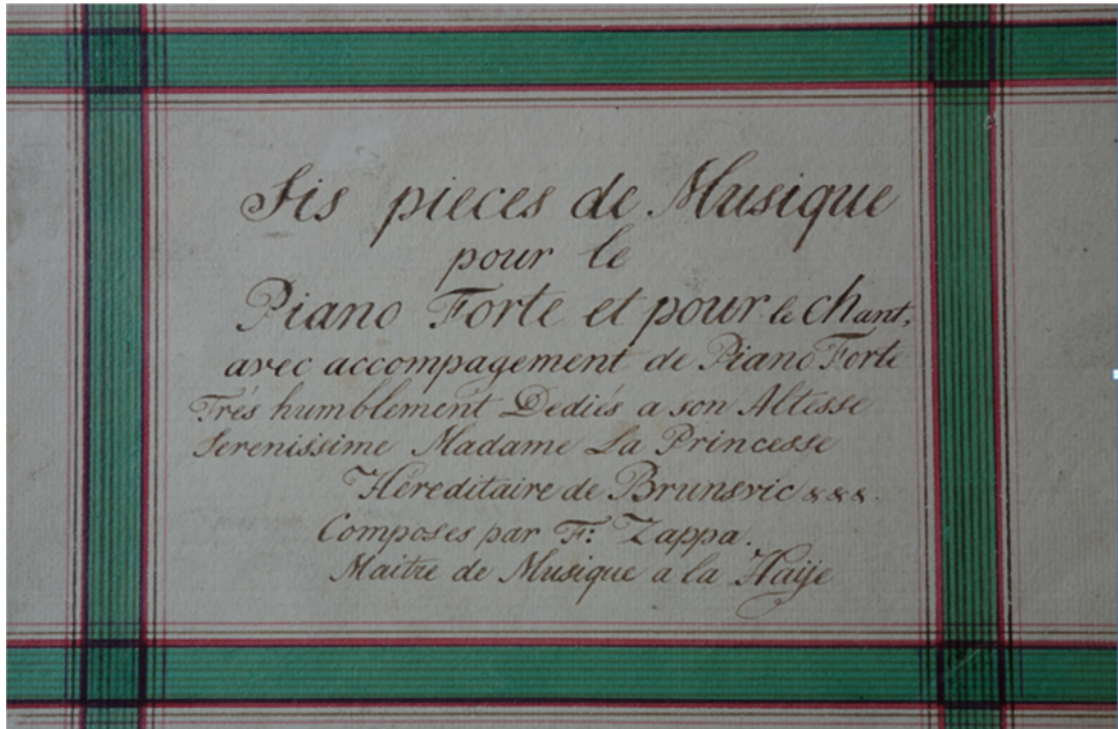 Sis pieces de Musique
pour le
Piano Forte et pour le chant,
avec accompagement de Piano Forte
Trés humblement Dediés a son Altesse
Serenissime Madame La Princesse
Héreditaire de Brunsvic &&&.
Composes par F: Zappa.
Maitre de Musique a la Haije